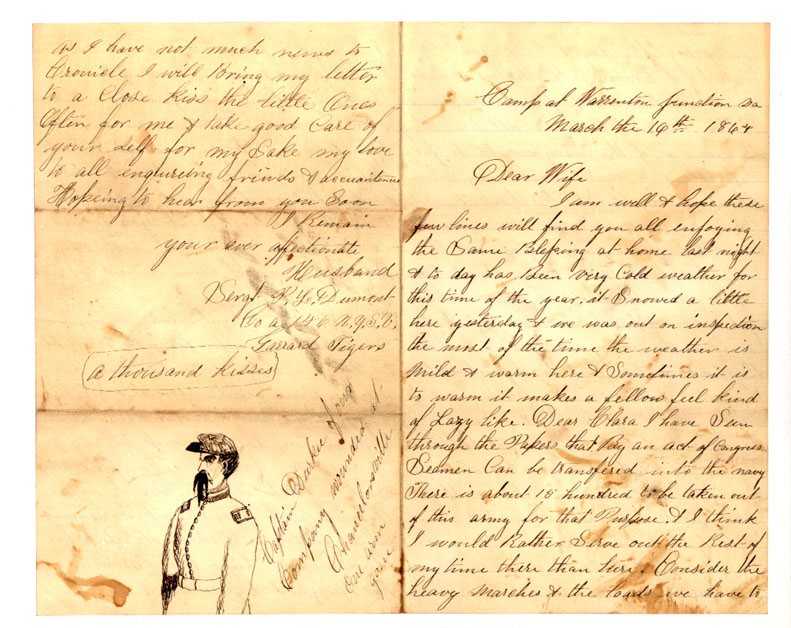 Camp at Warrenton junction va
March the 16th 1864
Dear Wife
I am well & hope these
few lines will find you all enjoying
the Same Blessing at home last night
& to day has Been very Cold weather for
this time of the year. it Snowed a little
here yesterday & we was out on inspection
the most of the time the weather is
Mild & warm here & Sometimes it is
to warm it makes a fellow feel kind
of Lazy like. Dear Clara I have Seen
through the Papers that By an act of Congress
Seamen Can be transfered into the navy
There is about 15 hundred to be taken out
of this army for that Purpose. & I think
I would Rather Serve out the Rest of
my time there than here. Consider the
heavy Marches & the loads we have to
As I have not much news to
Cronicle I will Bring my letter
to a Close kiss the little Ones
Often for me & take good Care of
your Self for my Sake my love
to all enquiring friends & accuaitences
Hopeing to hear from you Soon
I Remain
your ever afectionate
Husband
Sergt Dumont
Co a 146 N.Y.S.V.
Garrard Tigers
a thousand kisses
Captain Durkee of our
Company wounded at
Chancelorsville
one arm
gone